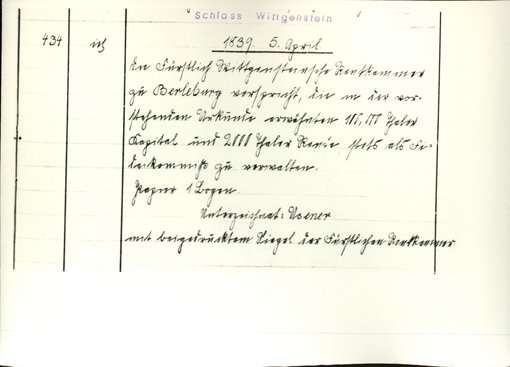 Schloss Wittgenstein
434
1839. 5. April
die Fürstlich Wittgensteinsche Rentkammer
zu Berleburg verspricht, die in der vor-
stehenden Urkunde erwähnten 100,000 Thaler
Kapital und 2000 Thaler Rente stets als Fi-
deikommiß zu verwalten.
Papier 1 Bogen.
Unterzeichnet: Usener
mit beigedrücktem Siegel der Fürstlichen Rentkammer